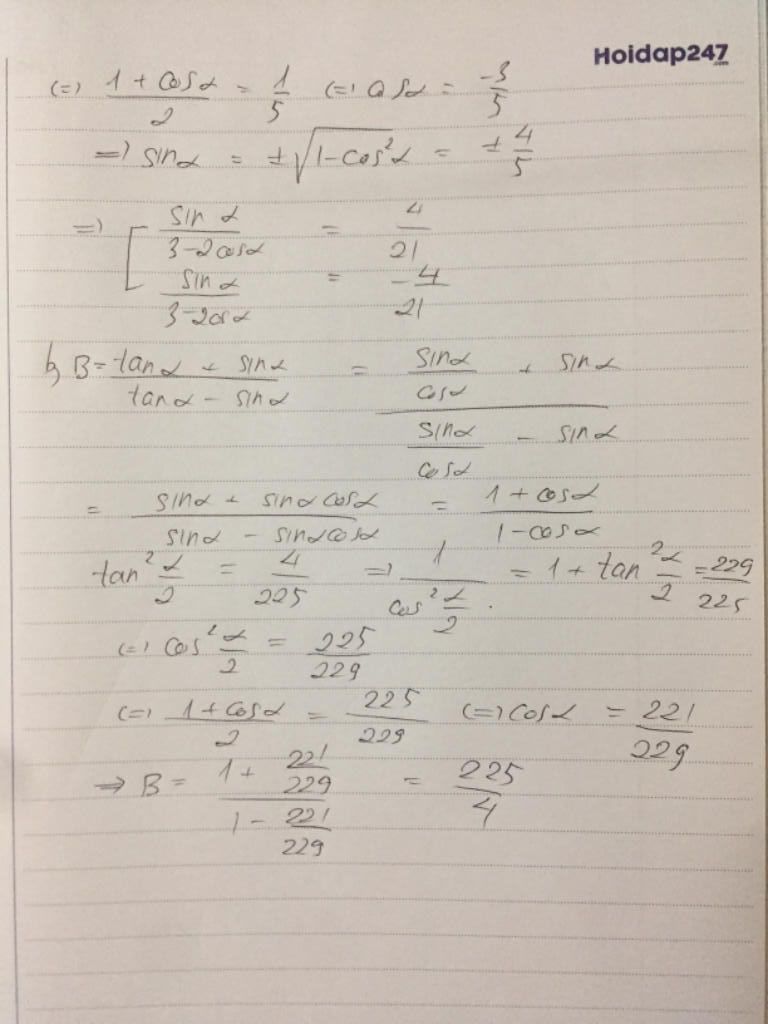 Hoidap247.com
(=) (1 + cosα)/2 = 1/5 (=) cosα = -3/5
=) sinα = ±√(1-cos²α) = ± 4/5
=) [ sinα/(3-2cosα) = 4/21
sinα/(3-2cosα) = -4/21
b, B = (tanα + sinα)/(tanα - sinα) = (sinα/cosα + sinα)/(sinα/cosα - sinα)
= (sinα + sinαcosα)/(sinα - sinαcosα) = (1 + cosα)/(1-cosα)
tan² α/2 = 4/225 =) 1/(cos² α/2) = 1 + tan² α/2 = 229/225
(=) cos² α/2 = 225/229
(=) (1+cosα)/2 = 225/229 (=) cosα = 221/229
=> B = (1 + 221/229)/(1 - 221/229) = 225/4